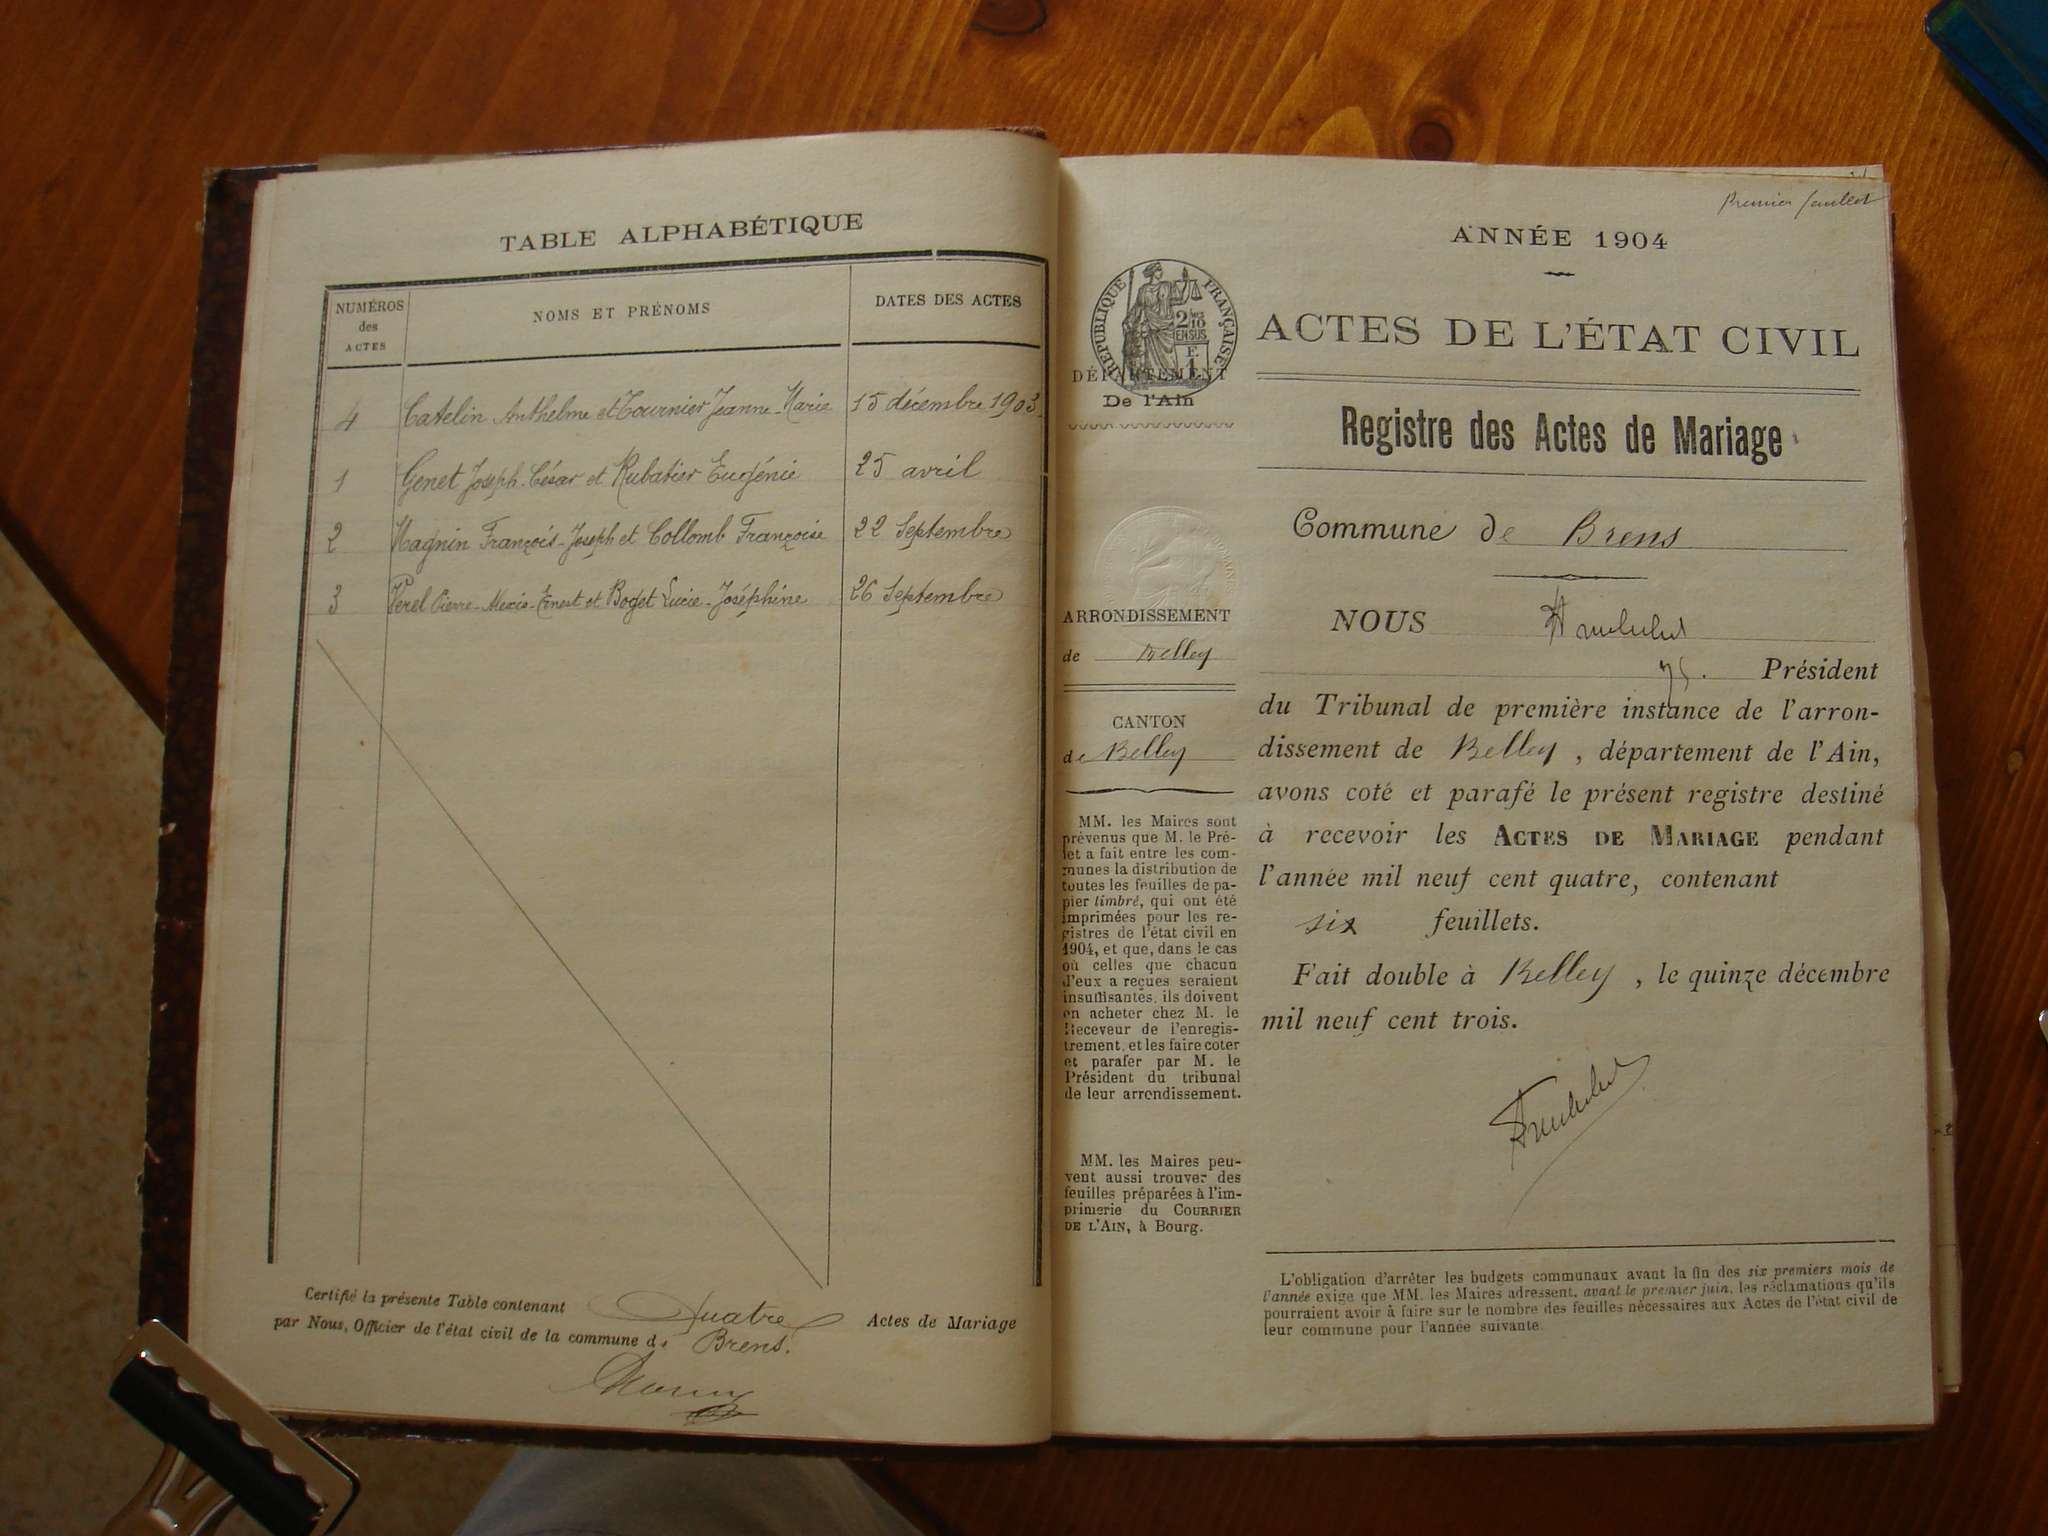 TABLE ALPHABÉTIQUE
NUMÉROS des ACTES
NOMS ET PRÉNOMS
DATES DES ACTES
4 Catelin Anthelme et Tournier Jeanne-Marie 15 décembre 1903
1 Genet Joseph-César et Rubatier Eugénie 25 avril
2 Magnin François-Joseph et Collomb Françoise 22 Septembre
3 Perel Pierre-Alexis-Ernest et Boget Lucie-Joséphine 26 Septembre
Certifié la présente Table contenant Quatre Actes de Mariage
par Nous, Officier de l'état civil de la commune de Brens.
Premier feuillet
ANNÉE 1904
RÉPUBLIQUE FRANÇAISE
2/10 EN SUS
F. 1
ACTES DE L'ÉTAT CIVIL
DÉPARTEMENT
De l'Ain
Registre des Actes de Mariage
Commune de Brens
ARRONDISSEMENT
de Belley
CANTON
de Belley
MM. les Maires sont
prévenus que M. le Pré-
fet a fait entre les com-
munes la distribution de
toutes les feuilles de pa-
pier timbré, qui ont été
imprimées pour les re-
gistres de l'état civil en
1904, et que, dans le cas
où celles que chacun
d'eux a reçues seraient
insuffisantes, ils doivent
en acheter chez M. le
Receveur de l'enregis-
trement, et les faire coter
et parafer par M. le
Président du tribunal
de leur arrondissement.
MM. les Maires peu-
vent aussi trouver des
feuilles préparées à l'im-
primerie du COURRIER
DE L'AIN, à Bourg.
NOUS
Président
du Tribunal de première instance de l'arron-
dissement de Belley, département de l'Ain,
avons coté et parafé le présent registre destiné
à recevoir les ACTES DE MARIAGE pendant
l'année mil neuf cent quatre, contenant
six feuillets.
Fait double à Belley, le quinze décembre
mil neuf cent trois.
L'obligation d'arrêter les budgets communaux avant la fin des six premiers mois de
l'année exige que MM. les Maires adressent, avant le premier juin, les réclamations qu'ils
pourraient avoir à faire sur le nombre des feuilles nécessaires aux Actes de l'état civil de
leur commune pour l'année suivante.